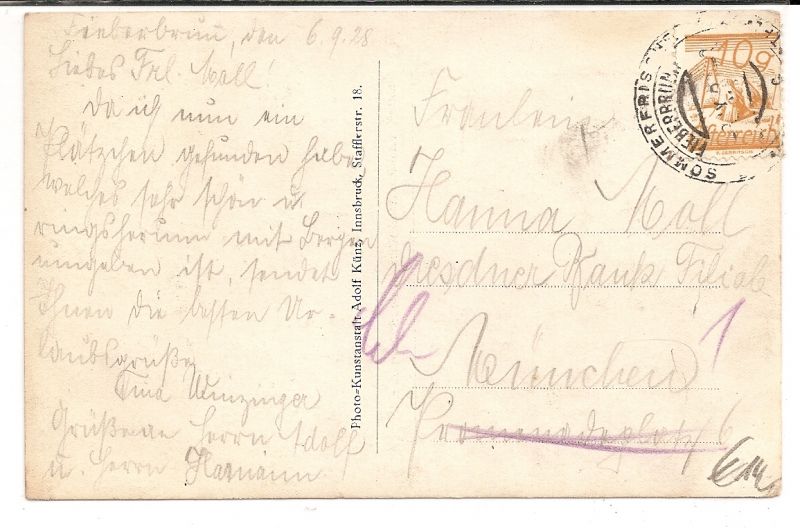 Fieberbrunn, den 6.9.28
Liebes Frl. Moll!
Da ich nun ein
Plätzchen gefunden habe,
welches sehr schön u.
ringsherum mit Bergen
umgeben ist, sendet
Ihnen die besten Ur-
laubsgrüße
Tina Winzinger
Grüße an Herrn Adolf
u. Herrn Hamann
Photo=Kunstanstalt Adolf Künz, Innsbruck, Stafflerstr. 18.
SOMMERFRISCHE
FIEBERBRUNN
10g
Österreich
Fräulein
Hanna Moll
Dresdner Bank Filiale
München 1
Promenadeplatz 6